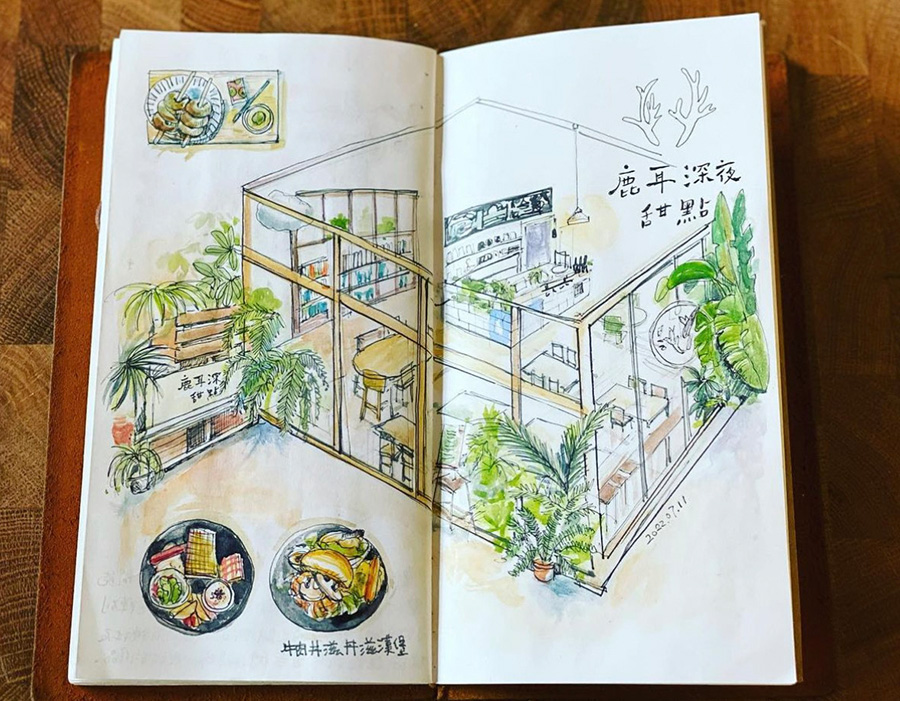 鹿耳深夜
甜點
鹿耳深
甜點
2022.07.11
牛肉丼滋丼滋漢堡